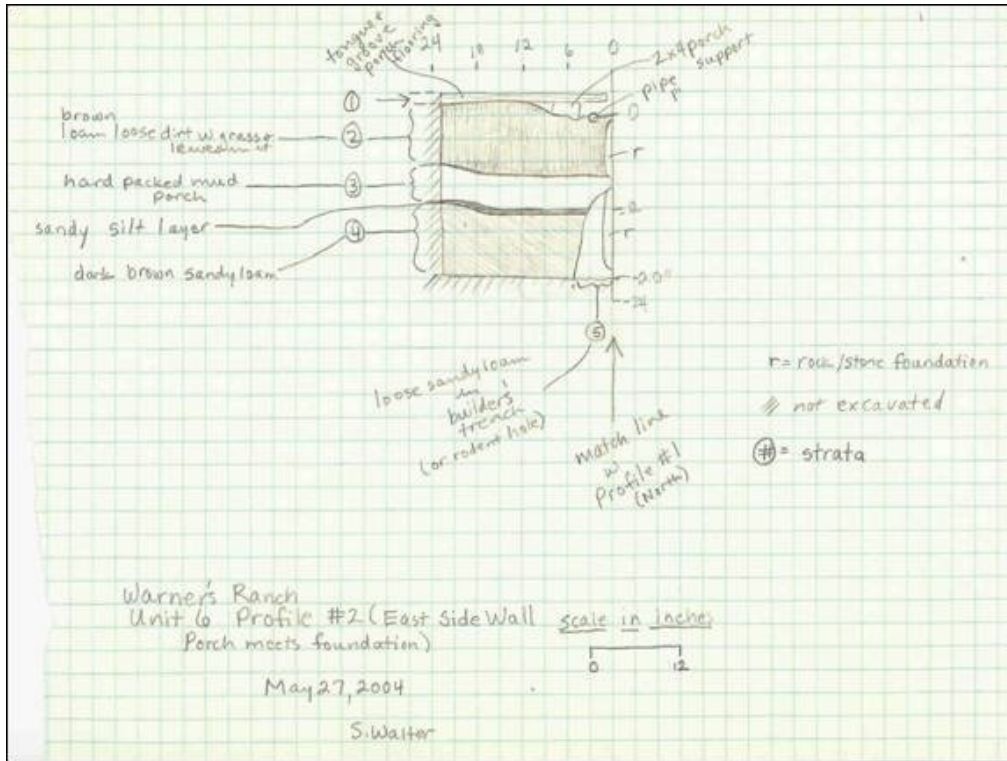 tongue &
groove
porch
flooring
24 18 12 6 0
2x4 porch
support
pipe
P
①
0
brown
loam loose dirt w grass &
leaves in it
②
r
hard packed mud
porch
③
sandy silt layer
④
r
dark brown sandy loam
-20"
-24
⑤
loose sandy loam
in
builder's
trench
(or rodent hole)
match line
w
Profile #1
(North)
r = rock/stone foundation
not excavated
(#) = strata
Warner's Ranch
Unit 6 Profile #2 (East Side Wall
Porch meets foundation)
scale in inches
0 12
May 27, 2004
S. Walter